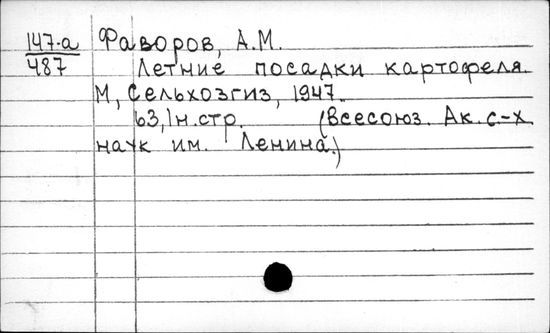 147-а Фаворов, А.М.
487 Летние посадки картофеля.
М, Сельхозгиз, 1947.
63,1н.стр. (Всесоюз. Ак. с-х
наук им. Ленина.)